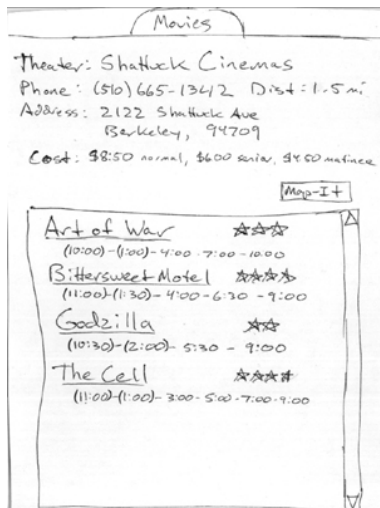 Movies
Theater: Shattuck Cinemas
Phone: (510) 665-13412 Dist: 1.5 mi
Address: 2122 Shattuck Ave
Berkeley, 94709
Cost: $8:50 normal, $600 senior, $4.50 matinee
Map-It
Art of War
(10:00)-(1:00)-4:00-7:00-10:00
Bittersweet Motel
(11:00)-(1:30)-4:00-6:30-9:00
Godzilla
(10:30)-(2:00)-5:30-9:00
The Cell
(11:00)-(1:00)-3:00-5:00-7:00-9:00